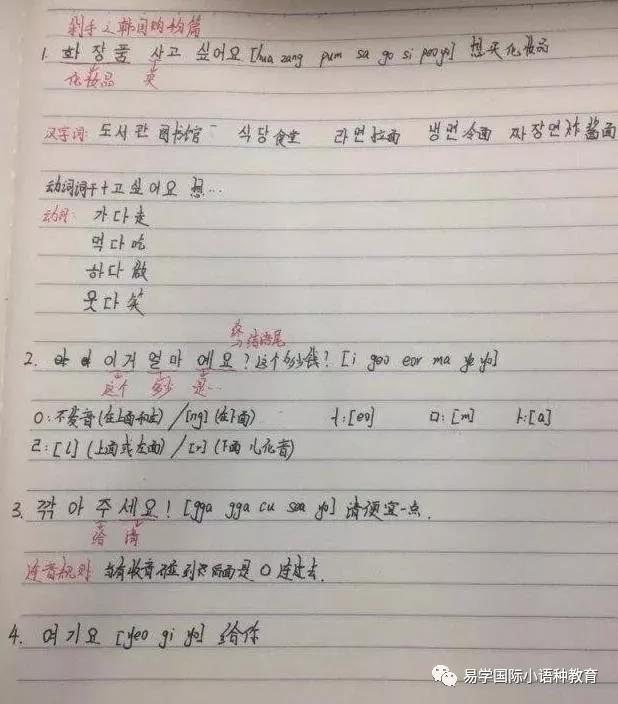 剁手之韩国购物篇
1. 화장품 사고 싶어요 [hua zang pum sa go si peo yo] 想买化妆品
化妆品 买
汉字词: 도서관 图书馆 식당 食堂 라면 拉面 냉면 冷面 짜장면 炸酱面
动词词干+고싶어요 想...
动词: 가다 走
먹다 吃
하다 做
웃다 笑
终结语尾
2. 이거 얼마예요? 这个多少钱? [i geo eor ma ye yo]
这个 多少 是...
ㅇ: 不发音(在上面和左)/[ng](在下面) ㅓ:[eo] ㅁ:[m] ㅏ:[a]
ㄹ: [l](上面或左面)/[r](下面 儿化音)
3. 깎아 주세요! [gga gga cu sea yo] 请便宜一点.
给 请
连音规则 当有收音 后面是 ㅇ 连过去.
4. 여기요 [yeo gi yo] 给你
易学国际小语种教育